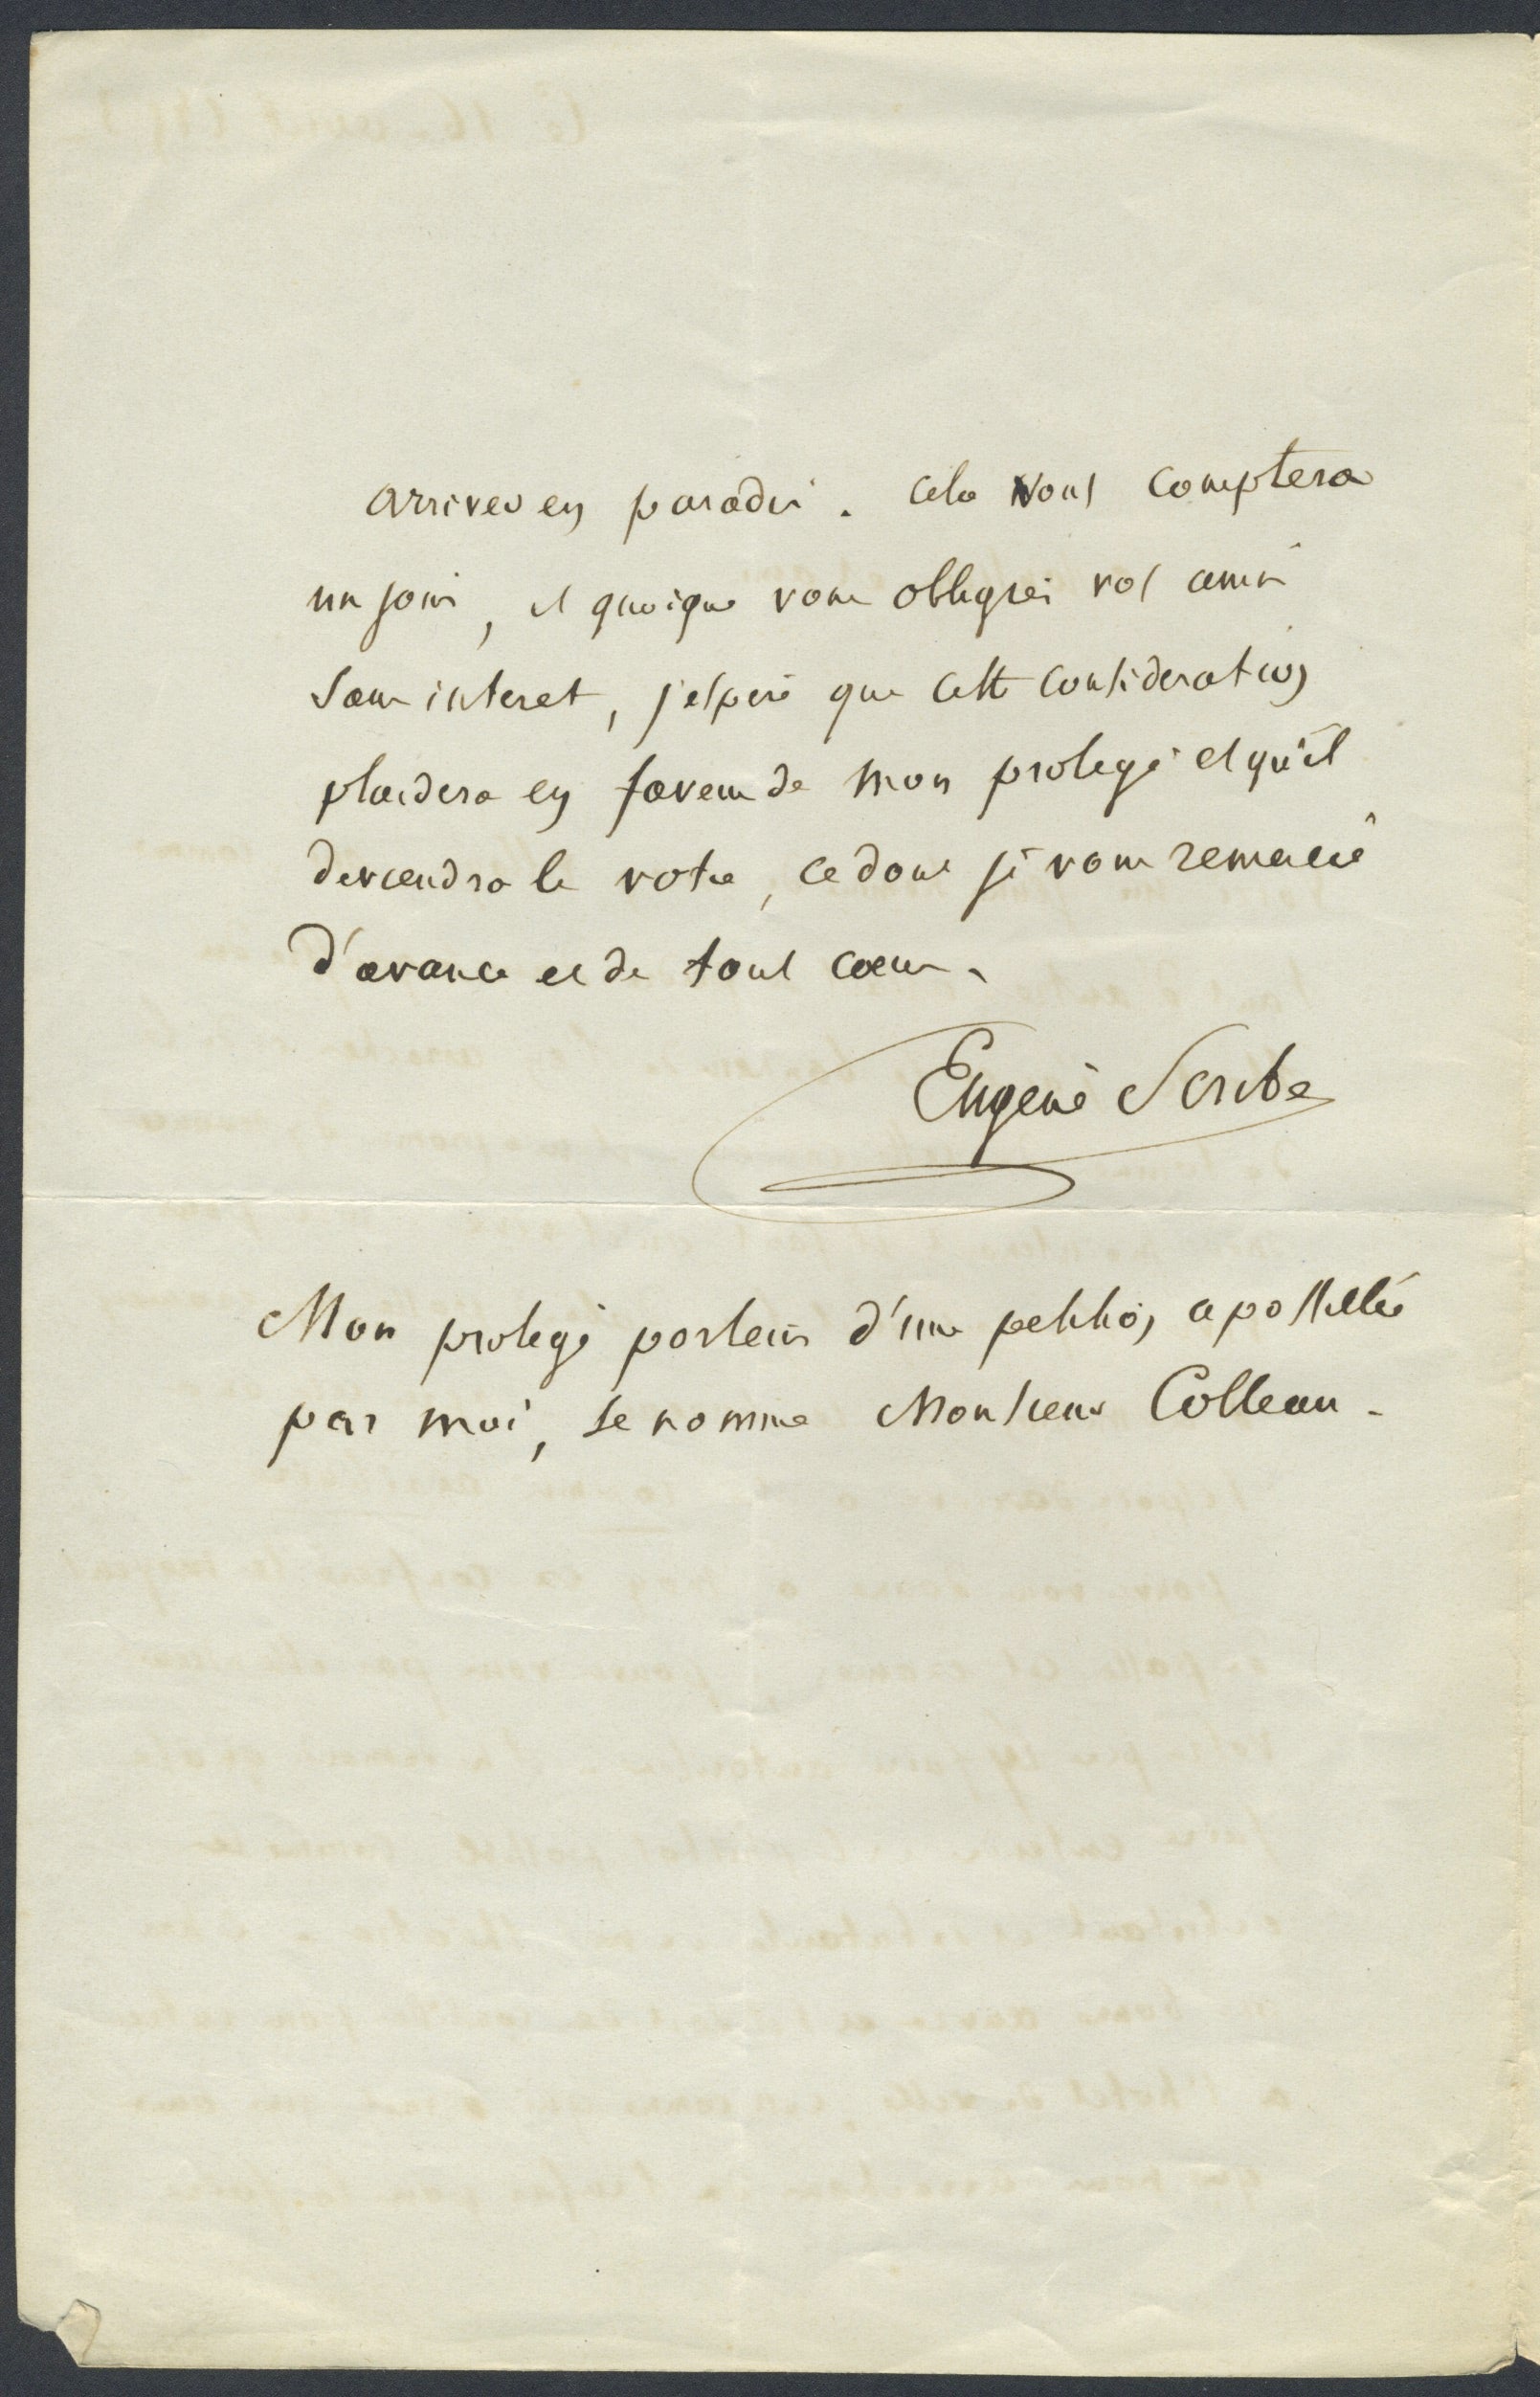 arriver en paradis. cela vous comptera
un jour, et quoique vous obligiez vos amis
sans interet, j'espere que cette consideration
plaidera en faveur de mon protegé et qu'il
deviendra le votre, ce dont je vous remercie
d'avance et de tout coeur.
Eugene Scribe
Mon protegé porteur d'une petition apostillée
par moi, se nomme Monsieur Colleau.